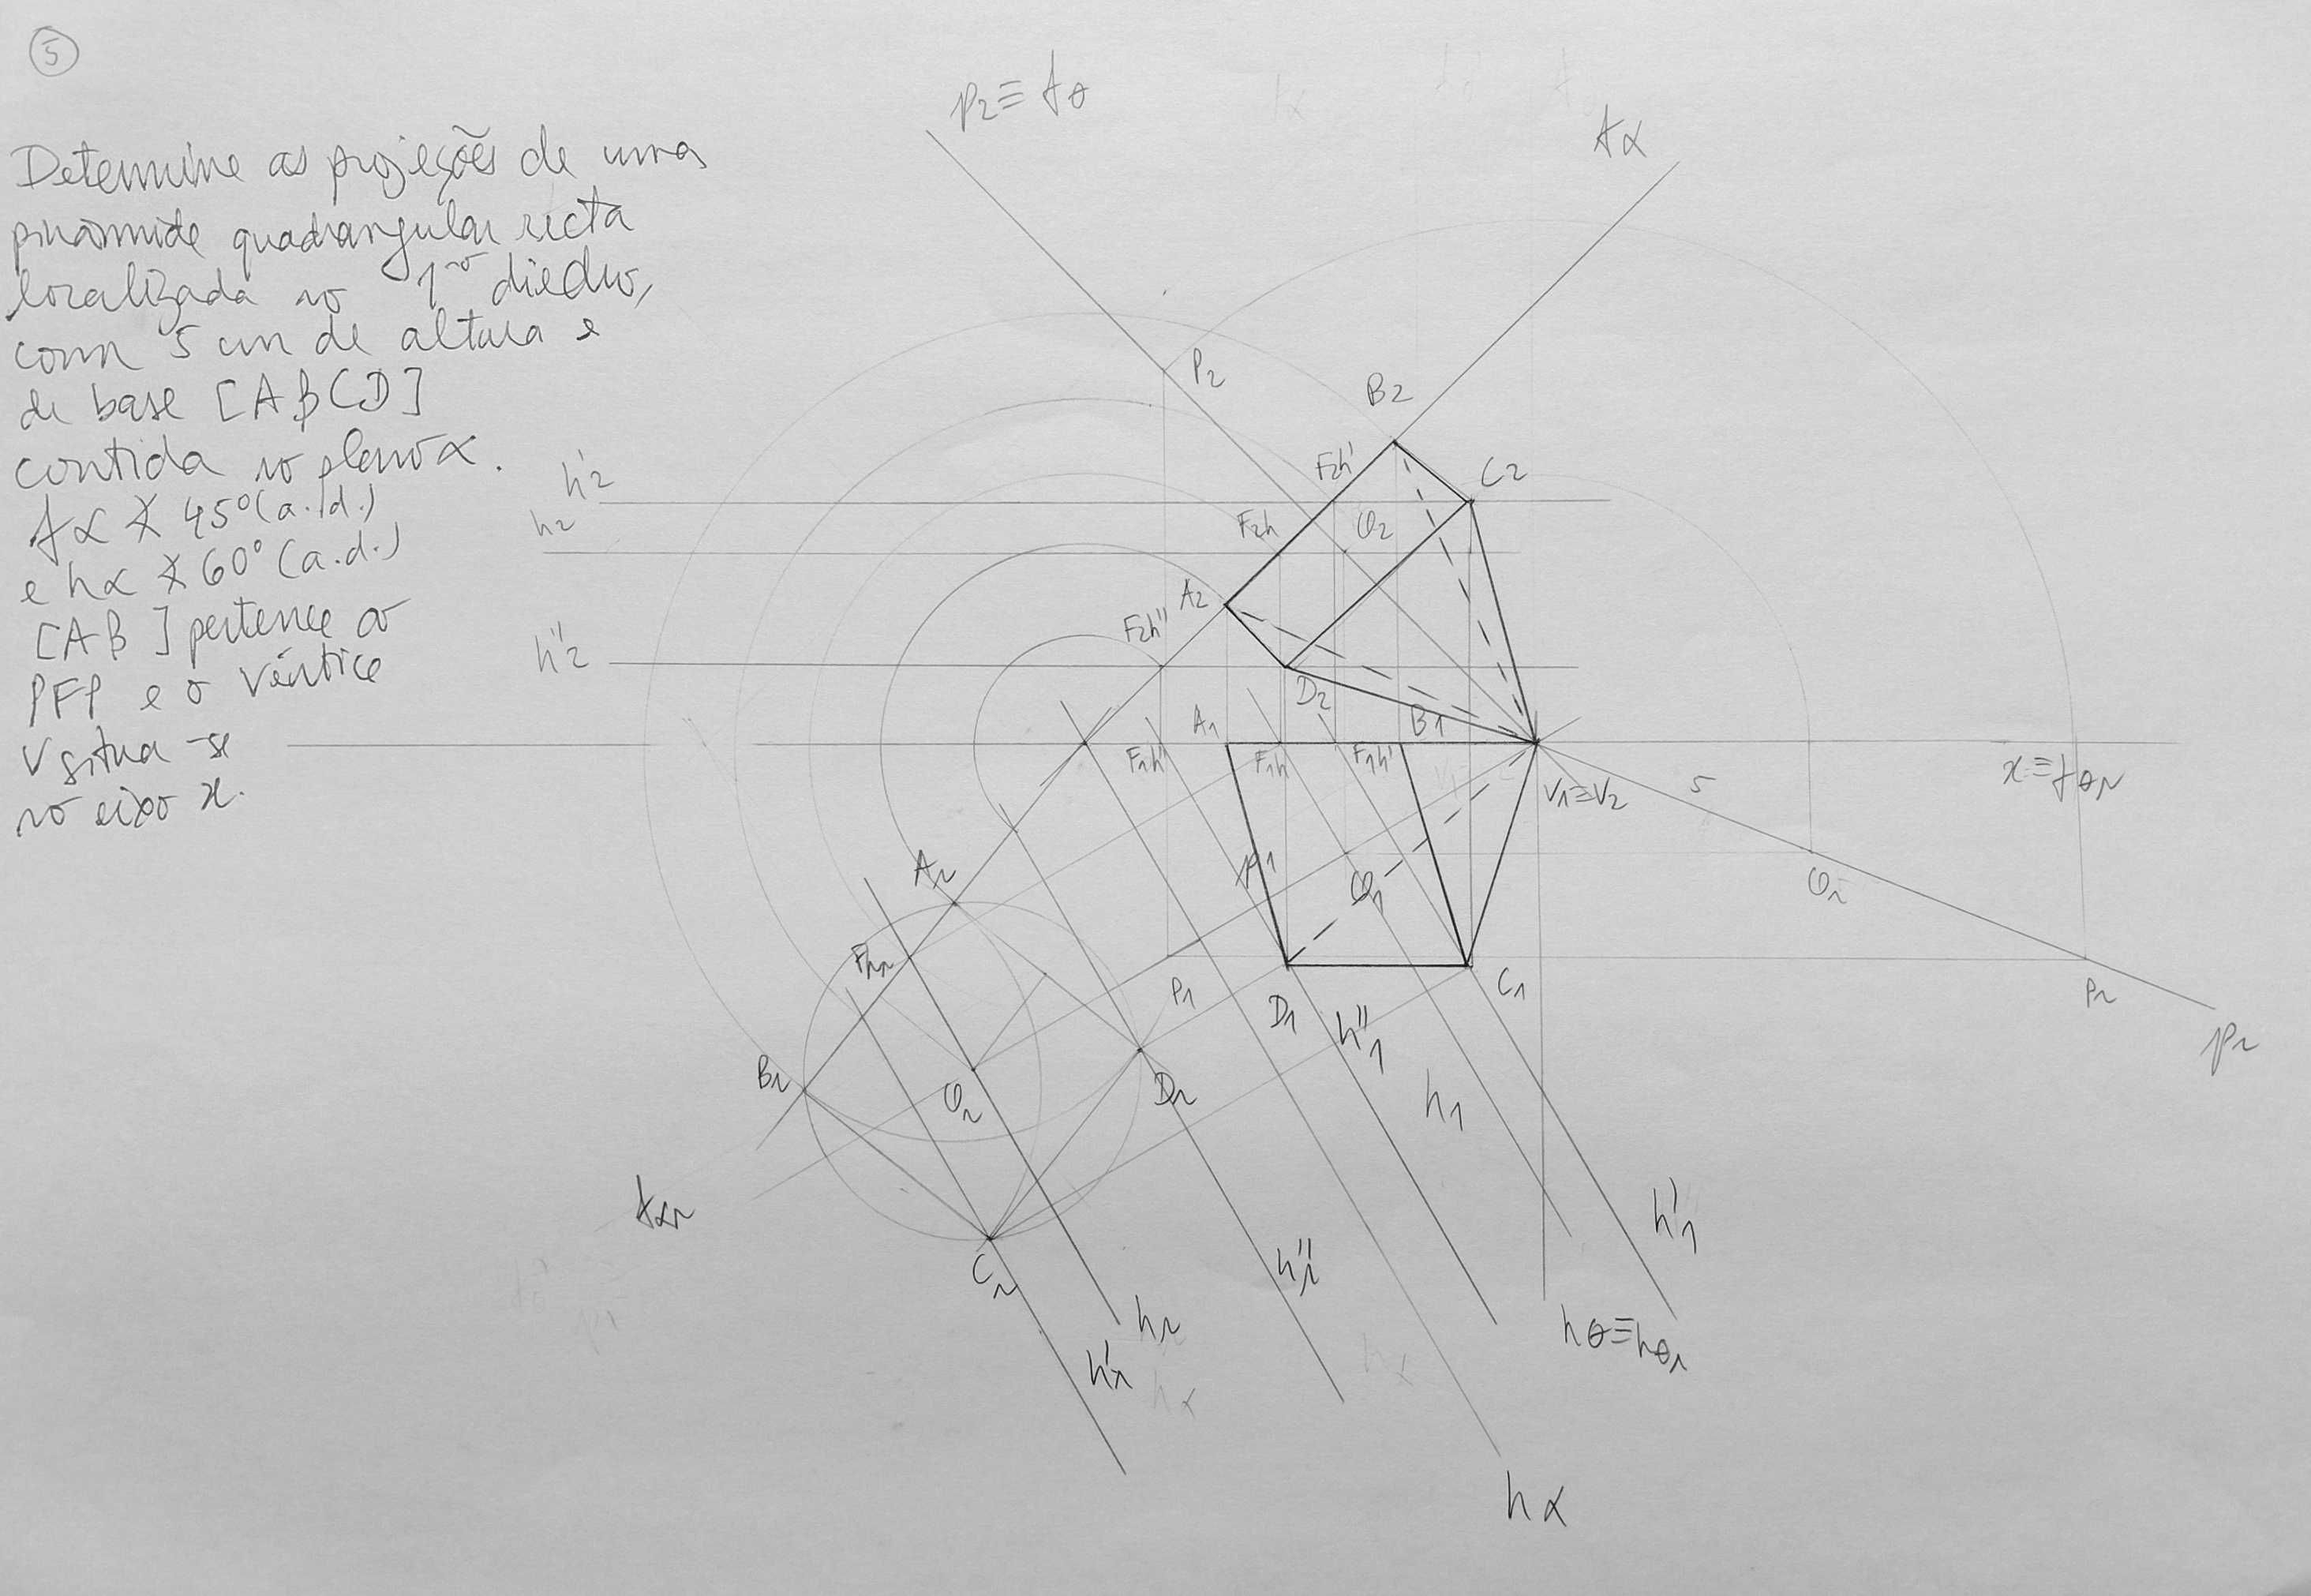 5
Determine as projeções de uma
pirâmide quadrangular recta
localizada no 1º diedro,
com 5 cm de altura e
de base [ABCD]
contida no plano α.
fα ∡ 45º (a.d.)
e hα ∡ 60º (a.d.)
[AB] pertence ao
PFP e o vértice
V situa-se
no eixo x.
p2≡fθ
fα
P2
B2
F2h'
C2
h'2
h2
F2h
O2
A2
F2h''
h''2
D2
A1
B1
F1h
F1h'
V1≡V2
5
x≡fθr
Ar
p1
O1
Or
Fhr
P1
D1
C1
Pr
pr
h''1
Br
Or
Dr
h1
fαr
h'1
Cr
h''r
hr
hθ≡hθr
h'r
hα